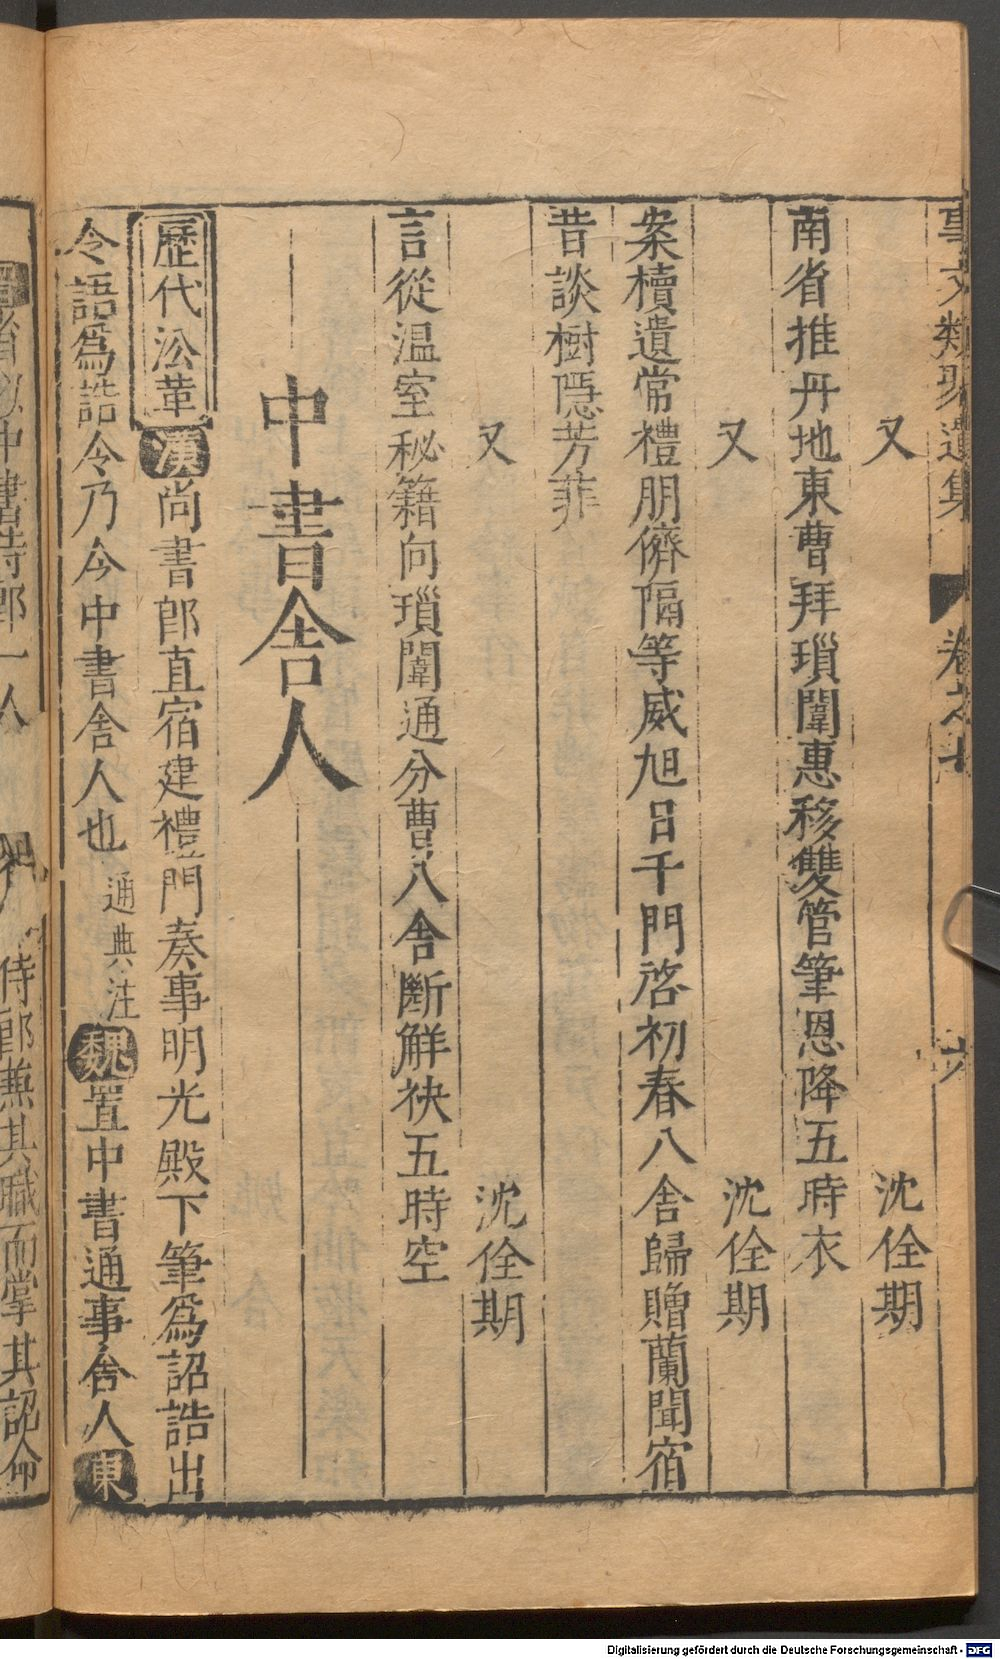 事文類聚遺集 卷之七 六
又 沈佺期
南省推丹地東曹拜瑣闈惠移雙管筆恩降五時衣
又 沈佺期
案櫝遺常禮朋儕隔等威旭日千門啓初春八舍歸贈蘭聞宿
昔談樹隱芳菲
又 沈佺期
言從温室秘籍向瑣闈通分曹八舍斷解袂五時空
中書舍人
歷代㳂革漢尚書郎直宿建禮門奏事明光殿下筆為詔誥出
令語為誥令乃今中書舍人也通典注魏置中書通事舍人東
中書侍郎一人 侍郎兼其職而掌其詔命
Digitalisierung gefördert durch die Deutsche Forschungsgemeinschaft - DFG